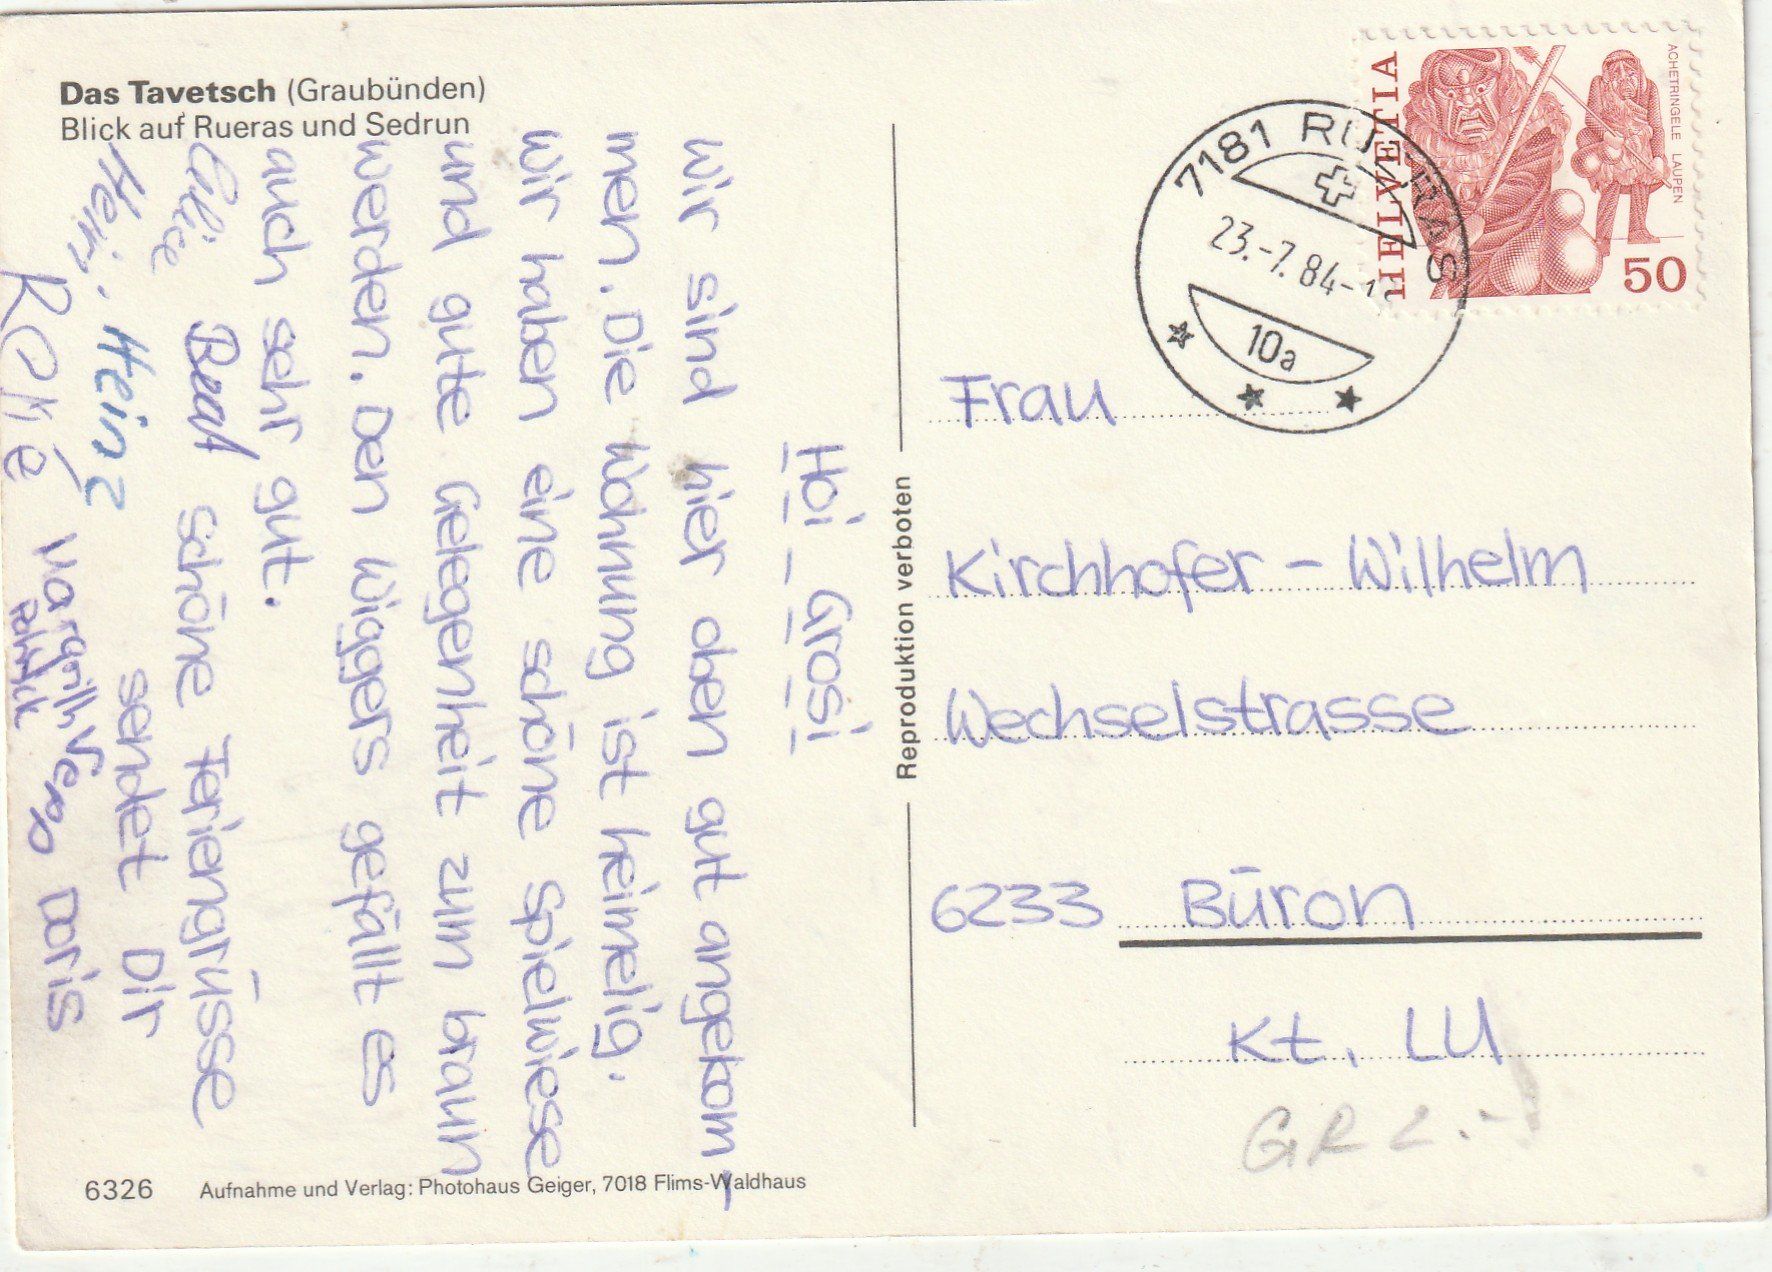 Das Tavetsch (Graubünden)
Blick auf Rueras und Sedrun
Hoi Grosi
Wir sind hier oben gut angekom-
men. Die Wohnung ist heimelig.
Wir haben eine schöne Spielwiese
und gute Gelegenheit zum braun
werden. Den Wiggers gefällt es
auch sehr gut.
schöne Feriengrüsse
sendet Dir
Alice Beat
Heiri. Heinz
René Margrith Vero Doris
Patrick
6326 Aufnahme und Verlag: Photohaus Geiger, 7018 Flims-Waldhaus
Reproduktion verboten
HELVETIA
ACHETRINGELE LAUPEN
50
7181 RUERAS
23.-7.84-
10a
Frau
Kirchhofer - Wilhelm
Wechselstrasse
6233 Büron
Kt. LU
GR 2.-